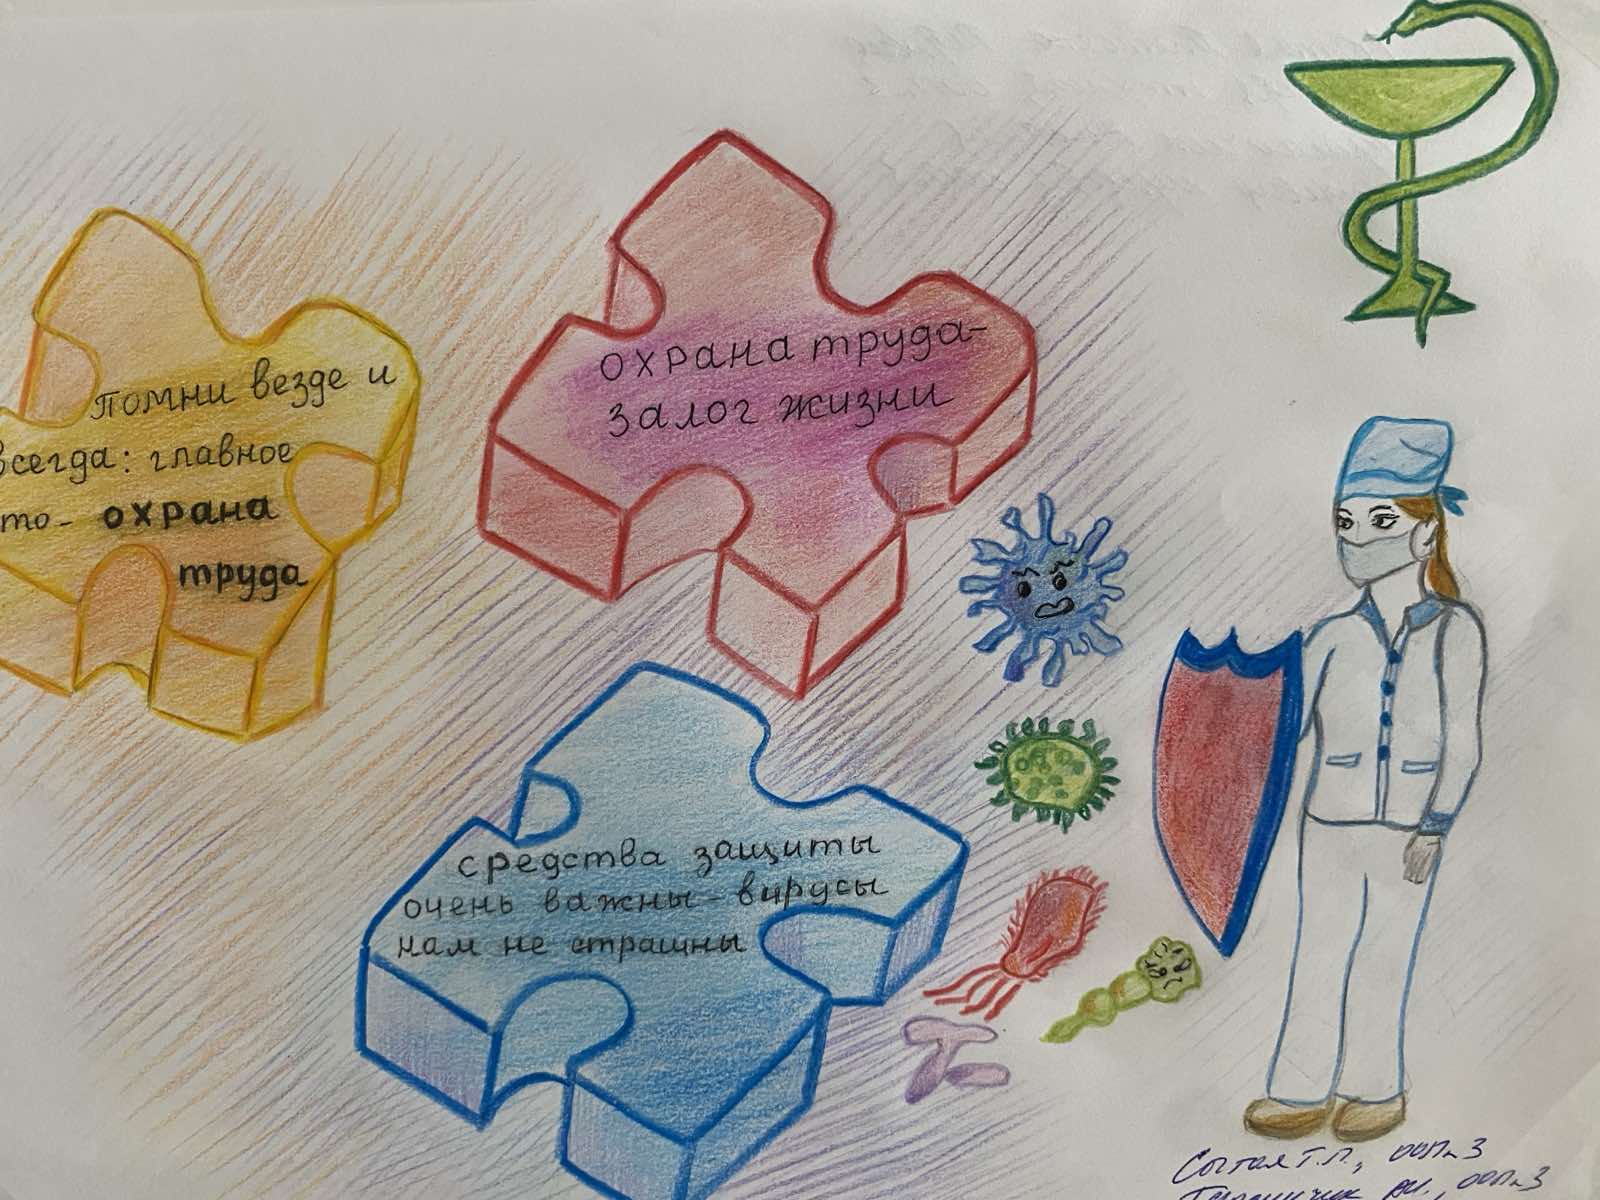 Помни везде и
всегда: главное
то- охрана
труда
охрана труда-
залог жизни
средства защиты
очень важны- вирусы
нам не страшны